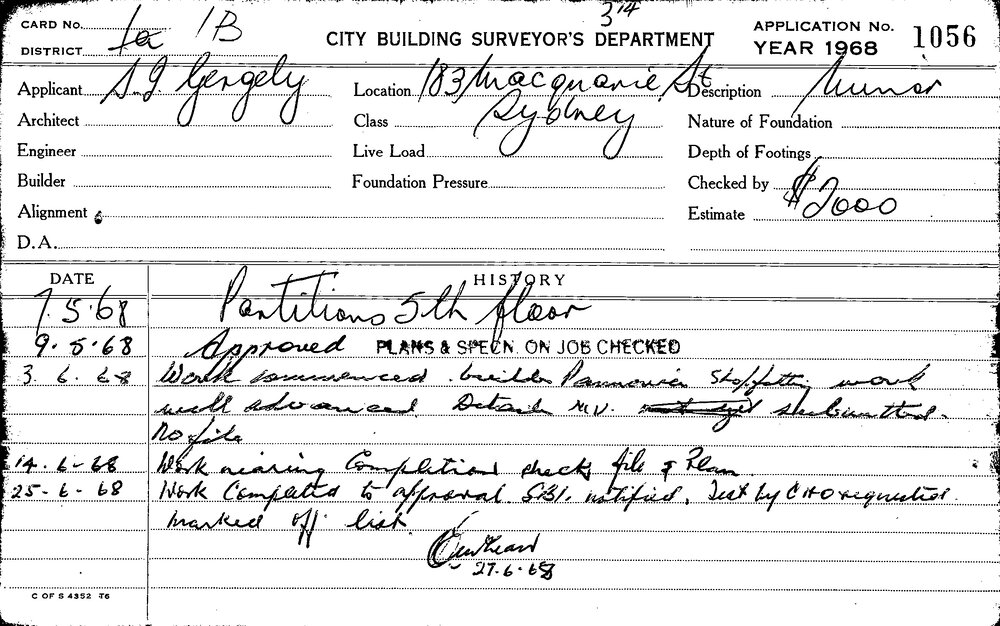 CARD No. 1a 1B
3 14
CITY BUILDING SURVEYOR'S DEPARTMENT
APPLICATION No. 1056
DISTRICT
YEAR 1968
Applicant S.J. Gergely Location 183 Macquarie St Description Minor
Architect Class Sydney Nature of Foundation
Engineer Live Load Depth of Footings
Builder Foundation Pressure Checked by
Alignment Estimate $2000
D.A.
DATE HISTORY
7.5.68 Partitions 5th floor
9.5.68 Approved PLANS & SPECN. ON JOB CHECKED
3.6.68 Work commenced. builder Pannonia Shopfitting work
well advanced. Details M.V. submitted.
No file
14.6-68 Work nearing Completion check file & Plan
25-6-68 Work Completed to approval. notified. Test by requested.
marked off list.
27.6.68
C OF S 4352 T6